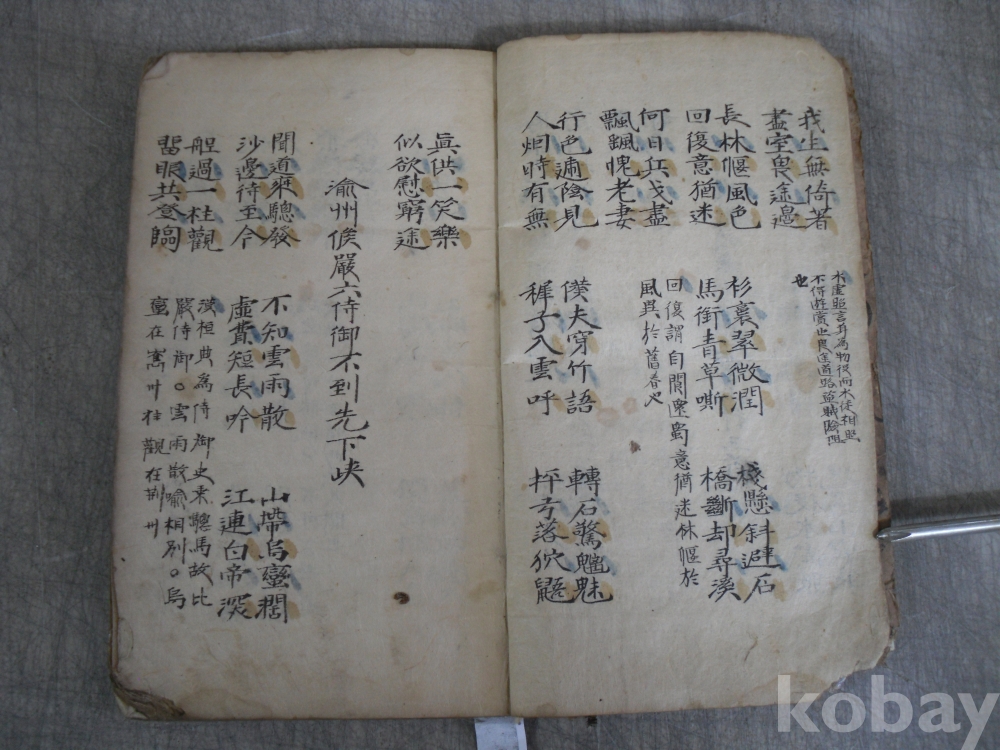 我生無倚著
盡室畏途邊
水虛照言身為物役而水徒相照
不併遊賞也畏途道路盜賊險阻
也
長林偃風色
回復意猶迷
衫裛翠微潤
馬銜青草嘶
棧懸斜避石
橋斷却尋溪
何日兵戈盡
飄飄愧老妻
回復謂自閬還蜀意猶迷林偃於
風異於舊春也
行色遞隐見
人烟時有無
僕夫穿竹語
稺子入雲呼
轉石驚魑魅
抨弓落狖鼯
眞供一笑樂
似欲慰窮途
渝州候嚴六侍御不到先下峽
聞道乘驄發
沙邊待至今
不知雲雨散
虛費短長吟
山帶烏蠻闊
江連白帝深
舡過一柱觀
留眼共登臨
漢桓典為侍御史乘驄馬故比
嚴侍御。雲雨散喻相別。烏
蠻在嶲州柱觀在荆州
kobay